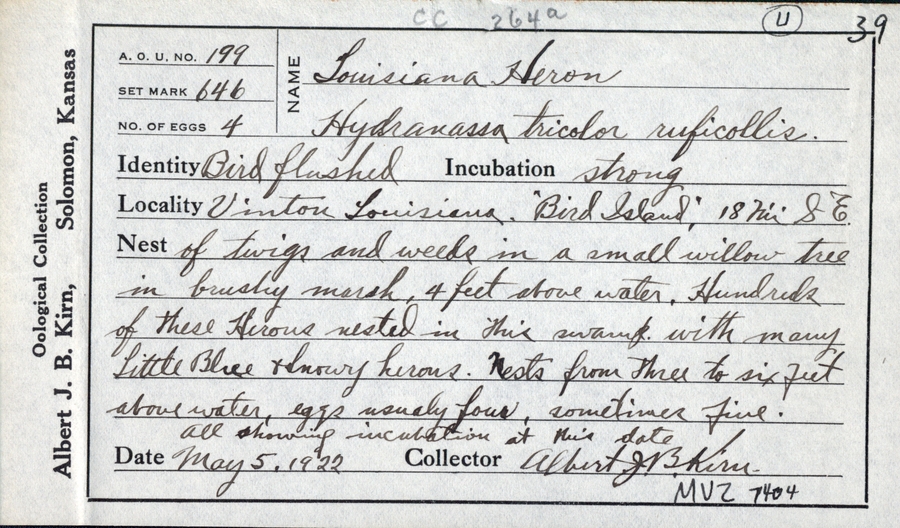 CC 264a
U
39
Oological Collection
Albert J. B. Kirn, Solomon, Kansas
A. O. U. NO. 199
SET MARK 646
NO. OF EGGS 4
NAME Louisiana Heron
Hydranassa tricolor ruficollis.
Identity Bird flushed Incubation strong
Locality Vinton Louisiana. "Bird Island", 18 mi S E.
Nest of twigs and weeds in a small willow tree
in brushy marsh, 4 feet above water. Hundreds
of these Herons nested in this swamp with many
Little Blue & Snowy herons. Nests from three to six feet
above water, eggs usualy four, sometimes five.
all showing incubation at this date
Date May 5, 1922 Collector Albert J. B. Kirn.
MVZ 7404